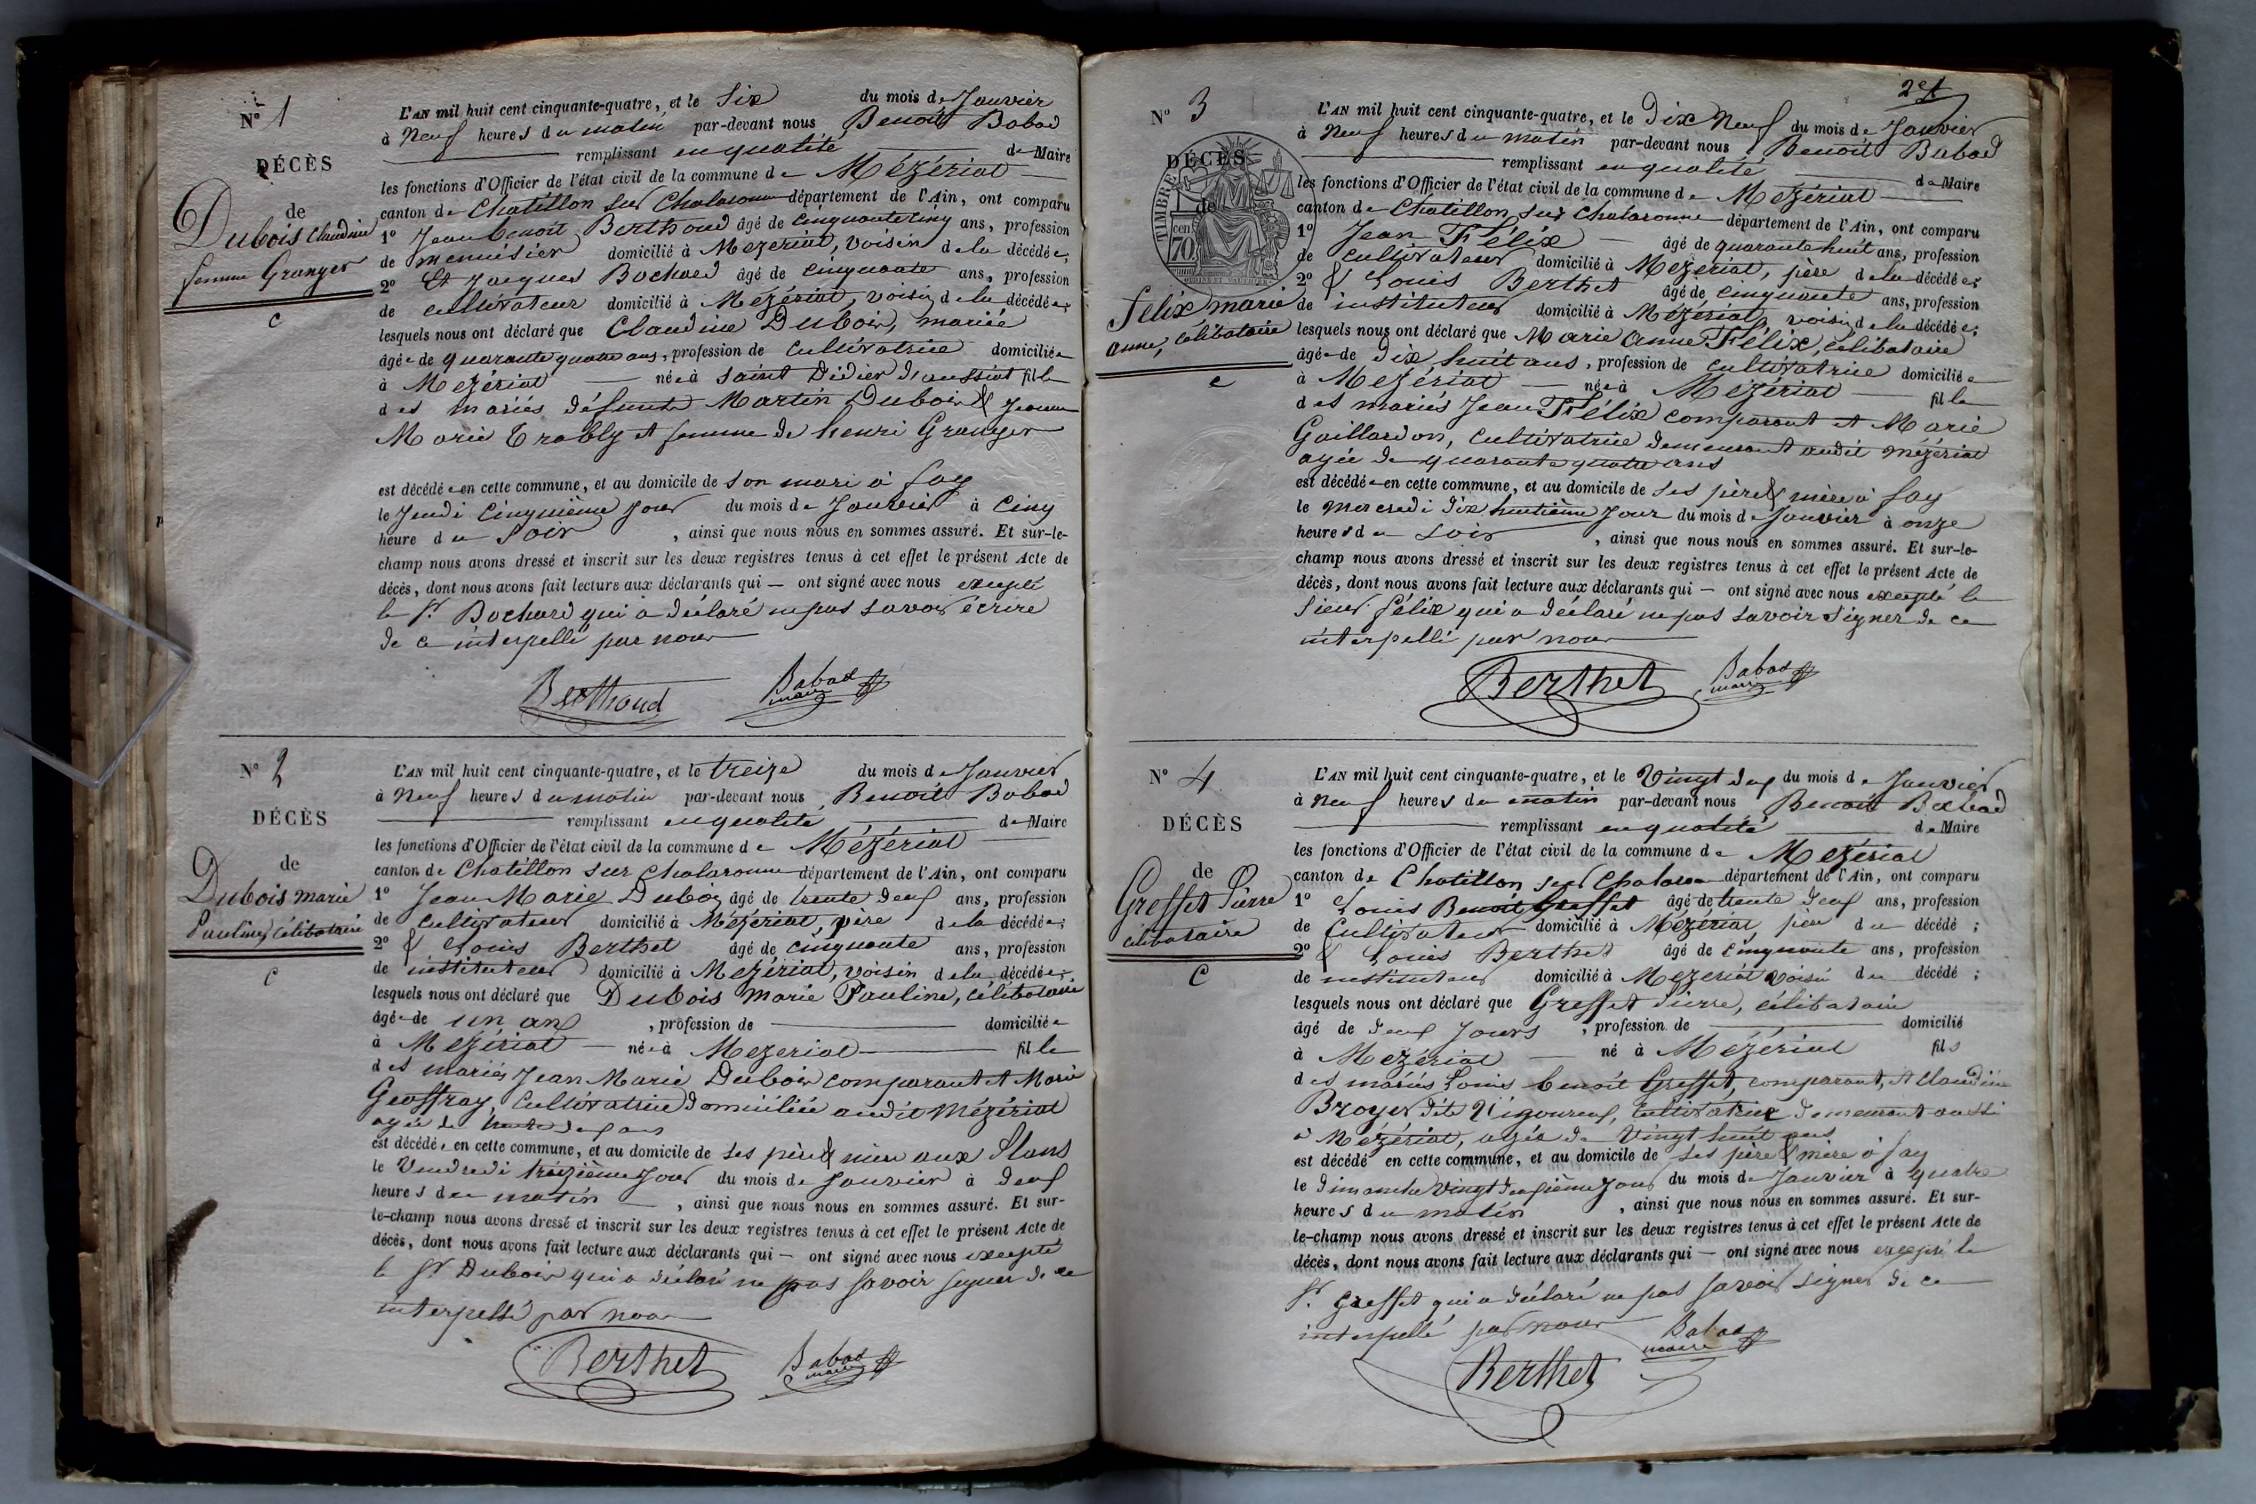 N° 1
DÉCÈS
de
Dubois Claudine
femme Granger
C
L'AN mil huit cent cinquante-quatre, et le Six du mois de Janvier
à Neuf heures du matin par-devant nous Benoit Babad
remplissant en qualité de Maire
les fonctions d'Officier de l'état civil de la commune de Mézériat
canton de Chatillon sur Chalaronne département de l'Ain, ont comparu
1° Jean benoit Berthoud âgé de cinquante cinq ans, profession
de menuisier domicilié à Mezeriat, voisin de la décédée,
2° Et Jacques Bochard âgé de cinquante ans, profession
de cultivateur domicilié à Mézériat, voisin de la décédée;
lesquels nous ont déclaré que Claudine Dubois, mariée
âgée de quarante quatre ans, profession de cultivatrice domiciliée
à Mezériat née à Saint Didier d'aussiat fille
des mariés défunts Martin Dubois & Jeanne
Marie Trably et femme de henri Granger
est décédée en cette commune, et au domicile de son mari à fay
le Jeudi Cinquième jour du mois de Janvier à Cinq
heure du Soir, ainsi que nous nous en sommes assuré. Et sur-le-
champ nous avons dressé et inscrit sur les deux registres tenus à cet effet le présent Acte de
décès, dont nous avons fait lecture aux déclarants qui — ont signé avec nous excepté
le Sr. Bochard qui a déclaré ne pas savoir écrire
de ce interpellé par nous
Berthoud Babad
maire
N° 2
DÉCÈS
de
Dubois marie
Pauline, célibataire
C
L'AN mil huit cent cinquante-quatre, et le treize du mois de Janvier
à Neuf heures du matin par-devant nous Benoit Babad
remplissant en qualité de Maire
les fonctions d'Officier de l'état civil de la commune de Mézériat
canton de Chatillon sur Chalaronne département de l'Ain, ont comparu
1° Jean Marie Dubois âgé de trente deux ans, profession
de Cultivateur domicilié à Mézériat, père de la décédée;
2° & Louis Berthet âgé de cinquante ans, profession
de instituteur domicilié à Mezériat, voisin de la décédée;
lesquels nous ont déclaré que Dubois Marie Pauline, célibataire
âgée de un an, profession de domiciliée
à Mézériat née à Mezeriat fille
des mariés Jean Marie Dubois comparant et Marie
Geoffray, Cultivatrice domiciliée audit Mézériat
agée de trente deux ans
est décédée en cette commune, et au domicile de ses père & mère aux Plans
le Vendredi treizième jour du mois de Janvier à deux
heures du matin, ainsi que nous nous en sommes assuré. Et sur-
le-champ nous avons dressé et inscrit sur les deux registres tenus à cet effet le présent Acte de
décès, dont nous avons fait lecture aux déclarants qui — ont signé avec nous excepté
le Sr Dubois qui a déclaré ne pas savoir signer de ce
interpellé par nous
Berthet Babad
maire
2e
N° 3
DÉCÈS
de
TIMBRE
cen
70
félix marie
anne, célibataire
c
L'AN mil huit cent cinquante-quatre, et le Dix Neuf du mois de Janvier
à Neuf heures du matin par-devant nous Benoit Babad
remplissant en qualité de Maire
les fonctions d'Officier de l'état civil de la commune de Mezériat
canton de Chatillon sur Chalaronne département de l'Ain, ont comparu
1° Jean Félix âgé de quarante huit ans, profession
de cultivateur domicilié à Mezeriat, père de la décédée;
2° & Louis Berthet âgé de cinquante ans, profession
de instituteur domicilié à Mézériat, voisin de la décédée;
lesquels nous ont déclaré que Marie Anne Félix, célibataire
âgée de Dix huit ans, profession de cultivatrice domiciliée
à Mezériat née à Mezériat fille
des mariés Jean Félix comparant et Marie
Gaillardon, Cultivatrice demeurant audit Mézériat
agée de quarante quatre ans
est décédée en cette commune, et au domicile de ses père & mère à fay
le mercredi Dix huitième Jour du mois de Janvier à onze
heures du soir, ainsi que nous nous en sommes assuré. Et sur-le-
champ nous avons dressé et inscrit sur les deux registres tenus à cet effet le présent Acte de
décès, dont nous avons fait lecture aux déclarants qui — ont signé avec nous excepté le
Sieur félix qui a déclaré ne pas savoir Signer de ce
interpellé par nous
Berthet Babad
maire
N° 4
DÉCÈS
de
Greffet Pierre
célibataire
C
L'AN mil huit cent cinquante-quatre, et le Vingt deux du mois de Janvier
à Neuf heures du matin par-devant nous Benoit Babad
remplissant en qualité de Maire
les fonctions d'Officier de l'état civil de la commune de Mezériat
canton de Chatillon sur Chalaron département de l'Ain, ont comparu
1° Louis Benoit Greffet âgé de trente deux ans, profession
de Cultivateur domicilié à Mézériat, père du décédé;
2° & Louis Berthet âgé de cinquante ans, profession
de instituteur domicilié à Mezeriat voisin du décédé;
lesquels nous ont déclaré que Greffet Pierre, célibataire
âgé de deux Jours, profession de domicilié
à Mezériat né à Mézériat fils
des mariés Louis benoit Greffet, comparant, et Claudine
Broyer dite Vigoureux, Cultivatrice demeurant aussi
à Mézériat, agée de Vingt huit ans
est décédé en cette commune, et au domicile de ses père & mère à fay
le Dimanche Vingt deuxième Jour du mois de Janvier à quatre
heures du matin, ainsi que nous nous en sommes assuré. Et sur-
le-champ nous avons dressé et inscrit sur les deux registres tenus à cet effet le présent Acte de
décès, dont nous avons fait lecture aux déclarants qui — ont signé avec nous excepté le
Sr. Greffet qui a déclaré ne pas savoir signer de ce
interpellé par nous Babad
maire
Berthet